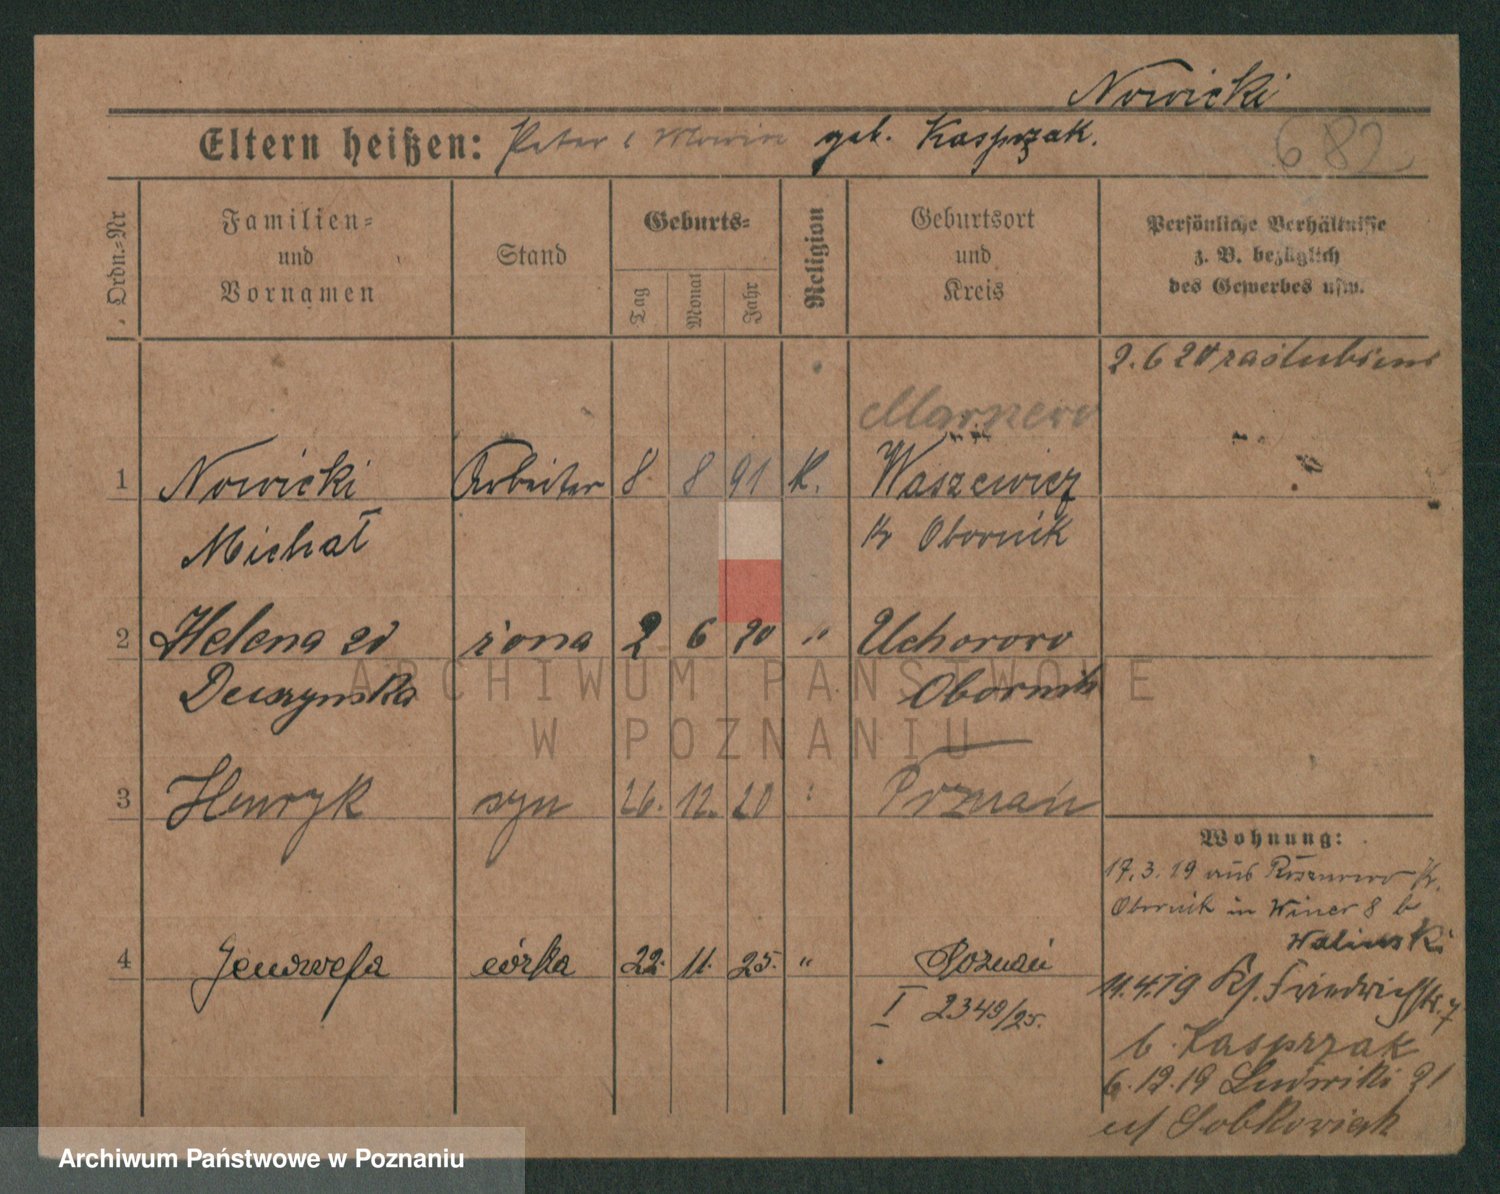 Nowicki
Eltern heißen: Peter geb. Kasprzak.
682
Ordn.=Nr
Familien=
und
Vornamen
Stand
Geburts=
Tag
Monat
Jahr
Religion
Geburtsort
und
Kreis
Persönliche Verhältnisse
z. B. bezüglich
des Gewerbes usw.
2.6 20 zaślubieni
1 Nowicki Arbeiter 8 8 91 K. Waszewicz
Michał Kr Obornik
2 Helena zd żona 2 6 20 " Uchorowo
Obornik
3 Henryk syn 26. 12. 20 Poznań
Wohnung:
17.3.19 aus Kr.
Obornik in Winer 8 b
Walinski
4 Genowefa córka 22. 11. 25. " Poznań
11.4.19 Friedrichstr. 7
I 2349/25.
b. Kasprzak
6.12.19 Ludwiki 21
u/ Sobkowiak
ARCHIWUM PAŃSTWOWE
W POZNANIU
Archiwum Państwowe w Poznaniu